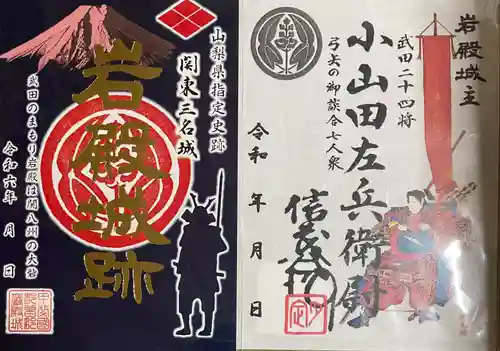 山梨県指定史跡
関東三名城
岩殿城跡
武田のまもり岩殿は関八州の大砦
令和六年 月 日
岩殿城主
武田二十四将
小山田左兵衛尉
弓矢の御談合七人衆
信茂
令和 年 月 日